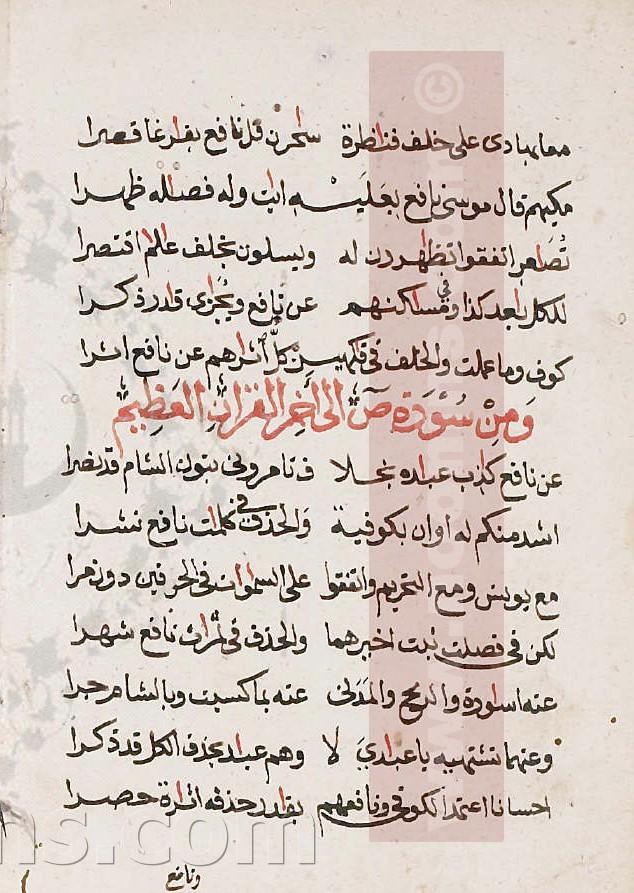 معا بهادى على خلف فناظرة سحران قل نافع بفارغا قصرا
مكيهم قال موسى نافع بعليه ايت وله فصاله ظهرا
تصاعر اتفقوا تظاهرون له ويسلون بخلف عالم اقتصرا
للكل باعد كذا وفى مساكنهم عن نافع ويجازى قادر ذكرا
كوف وما عملت والخلف فى فكهين كل اثارهم عن نافع اثرا
ومن سورة ص الى اخر القران العظيم
عن نافع كاذب عباده بخلا ف تامرونى بنون الشام قد نصرا
اشد منكم له او ان بكوفية والحذف فى كلمات نافع نشرا
مع يونس ومع التحريم واتفقوا على السموات فى الحرفين دون مرا
لكن فى فصلت ثبت اخيرهما والحذف فى ثمرات نافع شهرا
عنه اساورة والريح والمدنى عنه بما كسبت وبالشام جرا
وعنهما تشتهيه يا عبادى لا وهم عباد بحذف الكل قد ذكرا
احسانا اعتمد الكوفى ونافعهم بقادر حذفه اثارة حصرا
ونافع
ns.com